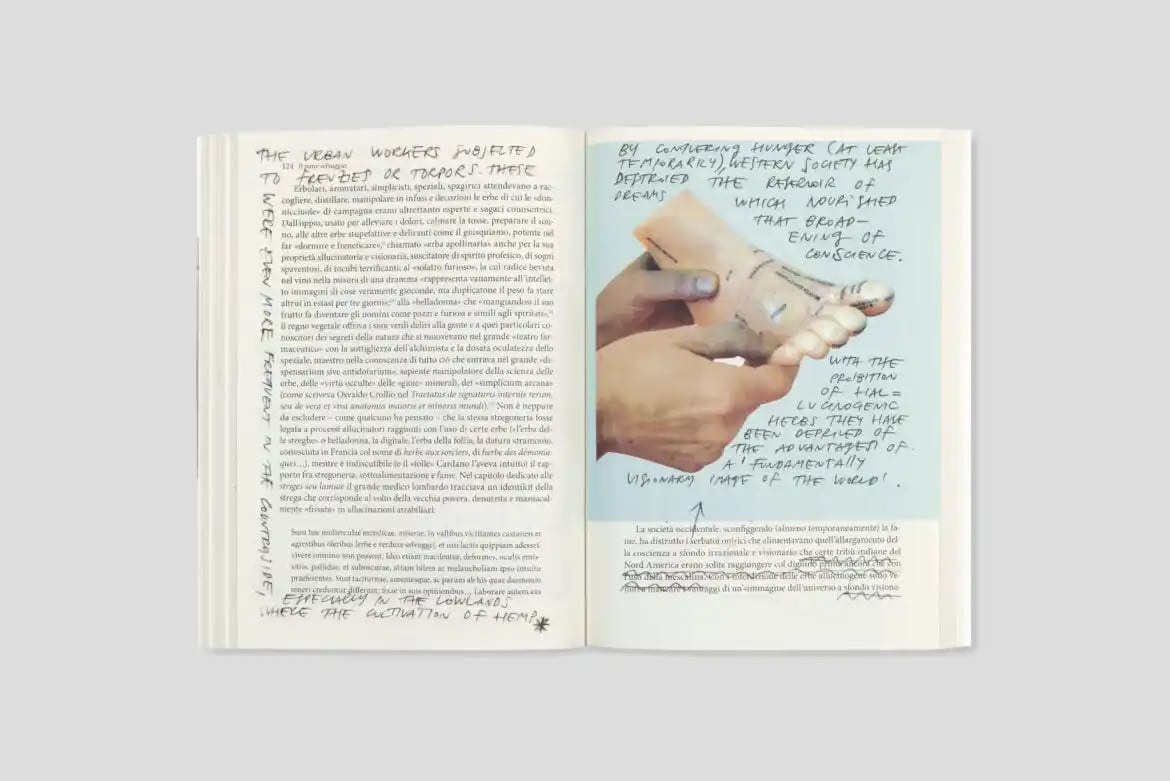 THE URBAN WORKERS SUBJECTED
124 Il pane selvaggio
TO FRENZIES OR TORPORS. THESE
WERE EVEN MORE FREQUENT IN THE COUNTRYSIDE,
Erbolari, aromatari, simplicisti, speziali, spagirici attendevano a rac-
cogliere, distillare, manipolare in infusi e decozioni le erbe di cui le «don-
nicciuole» di campagna erano altrettanto esperte e sagaci conoscitrici.
Dall'oppio, usato per alleviare i dolori, calmare la tosse, preparare il son-
no, alle altre erbe stupefattive e deliranti come il giusquiamo, potente nel
far «dormire e freneticare», chiamato «erba apollinaria» anche per la sua
proprietà allucinatoria e visionaria, suscitatore di spirito profetico, di sogni
spaventosi, di incubi terrificanti; al «solatro furioso», la cui radice bevuta
nel vino nella misura di una dramma «rappresenta vanamente all'intellet-
to immagini di cose veramente gioconde, ma duplicatone il peso fa stare
altrui in estasi per tre giorni»; alla «belladonna» che «mangiandosi il suo
frutto fa diventare gli uomini come pazzi e furiosi e simili agli spiritati»,
il regno vegetale offriva i suoi verdi deliri alla gente e a quei particolari co-
noscitori dei segreti della natura che si muovevano nel grande «teatro far-
maceutico» con la sottigliezza dell'alchimista e la dosata oculatezza dello
speziale, maestro nella conoscenza di tutto ciò che entrava nel grande «di-
spensarium sive antidotarium», sapiente manipolatore della scienza delle
erbe, delle «virtù occulte» delle «gioie» minerali, dei «simplicium arcana»
(come scriveva Osvaldo Crollio nel Tractatus de signaturis internis rerum,
seu de vera et viva anatomia maioris et minoris mundi). Non è neppure
da escludere – come qualcuno ha pensato – che la stessa stregoneria fosse
legata a processi allucinatori raggiunti con l'uso di certe erbe («l'erba del-
le streghe» o belladonna, la digitale, l'erba della follia, la datura stramonio,
conosciuta in Francia col nome di herbe aux sorciers, di herbe des démonia-
ques...), mentre è indiscutibile (e il «folle» Cardano l'aveva intuito) il rap-
porto fra stregoneria, sottoalimentazione e fame. Nel capitolo dedicato alle
striges seu lamiae il grande medico lombardo tracciava un identikit della
strega che corrisponde al volto della vecchia povera, denutrita e maniacal-
mente «fissata» in allucinazioni atrabiliari:
Sunt hae mulierculae mendicae, miserae, in vallibus victitantes castaneis et
agrestibus oleribus [erbe e verdure selvagge], et nisi lactis quippiam adesset,
vivere omnino non possent. Ideo etiam macilentae, deformes, oculis emis-
sitiis, pallidae, et subobscurae, atram bilem ac melancholiam ipso intuitu
praeferentes. Sunt taciturnae, amentesque, ac parum ab his quae daemonio
teneri creduntur differunt: fixae in suis opinionibus... Laborare autem eas
ESPECIALLY IN THE LOWLANDS
WHERE THE CULTIVATION OF HEMP *
BY CONQUERING HUNGER (AT LEAST
TEMPORARILY), WESTERN SOCIETY HAS
DESTROIED THE RESERVOIR OF
DREAMS WHICH NOURISHED
THAT BROAD-
ENING OF
CONSCIENCE.
WITH THE
PROIBITION
OF HAL=
LUCINOGENIC
HERBS THEY HAVE
BEEN DEPRIVED OF
THE ADVANTAGES OF
A 'FUNDAMENTALLY
VISIONARY IMAGE OF THE WORLD'.
La società occidentale, sconfiggendo (almeno temporaneamente) la fa-
me, ha distrutto i serbatoi onirici che alimentavano quell'allargamento del-
la coscienza a sfondo irrazionale e visionario che certe tribù indiane del
Nord America erano solite raggiungere col digiuno prima ancora che con
l'uso della mescalina. Con l'interdizione delle erbe allucinogene sono ve-
nuti a mancare i vantaggi di un'immagine dell'universo a sfondo visiona-